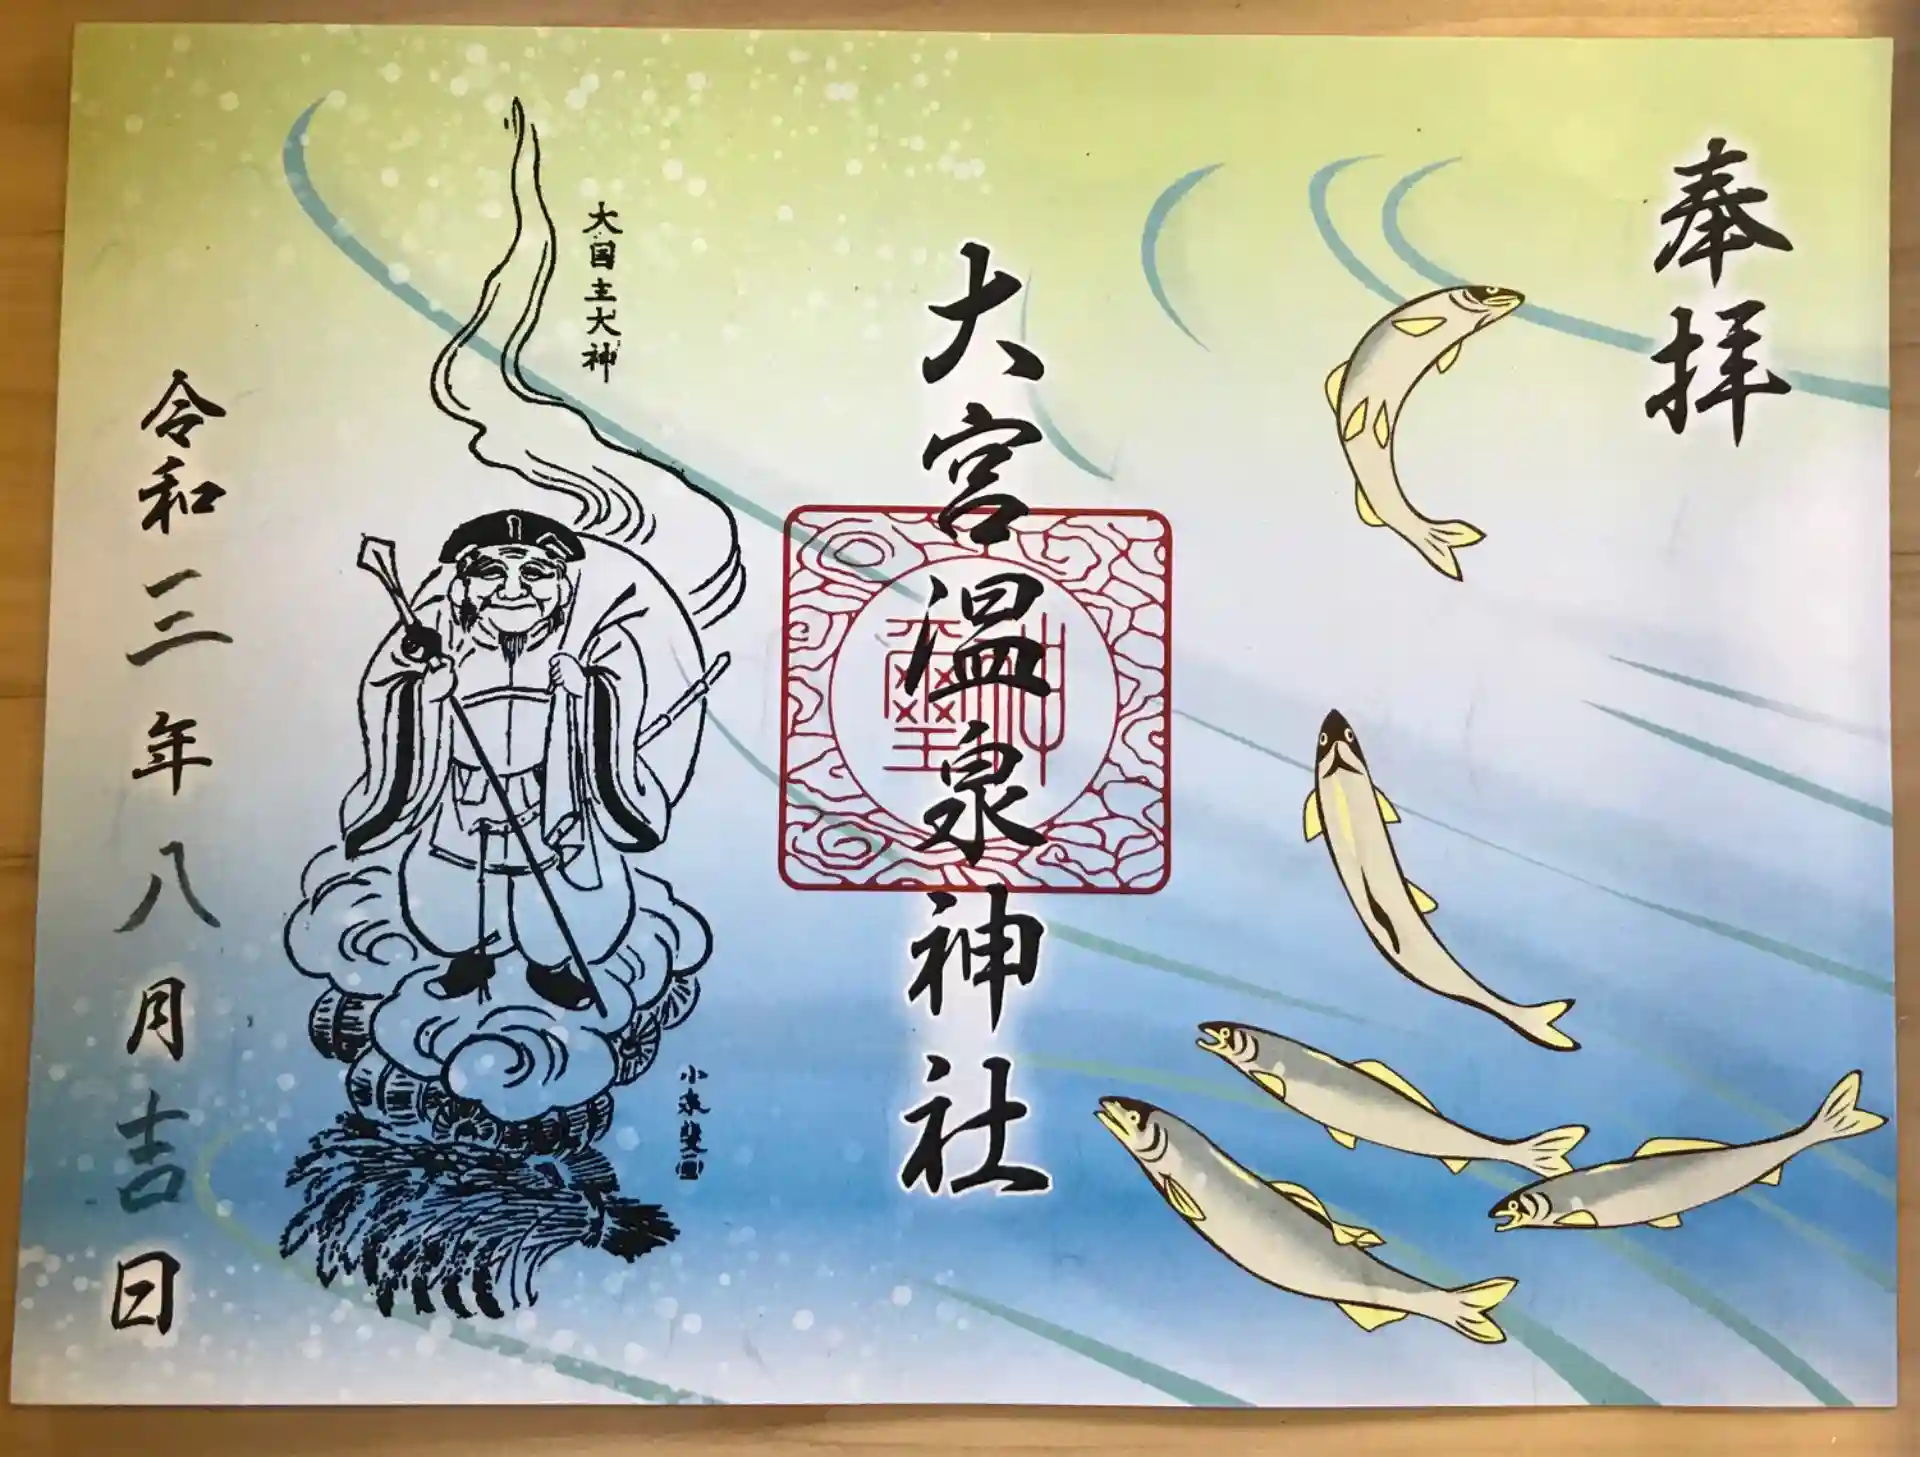 奉拝
大宮温泉神社
神璽
大国主大神
令和三年八月吉日